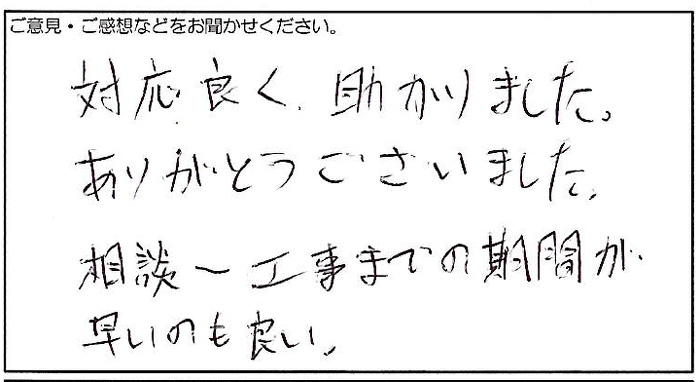 ご意見・ご感想などをお聞かせください。
対応良く、助かりました。
ありがとうございました。
相談～工事までの期間が
早いのも良い。